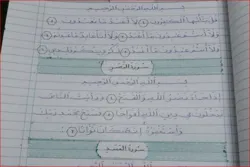 بسم الله الرحمن الرحيم
قل يأيها الكفرون ١ لا أعبد ما تعبدون ٢
ولا أنتم عبدون ما أعبد ٣ ولا أنا عابد ما عبدتم ٤
ولا أنتم عبدون ما أعبد ٥ لكم دينكم ولي دين ٦
سورة النصر
بسم الله الرحمن الرحيم
إذا جاء نصر الله والفتح ١ ورأيت الناس
يدخلون في دين الله أفواجا ٢ فسبح بحمد ربك
واستغفره إنه كان توابا ٣
سورة المسد